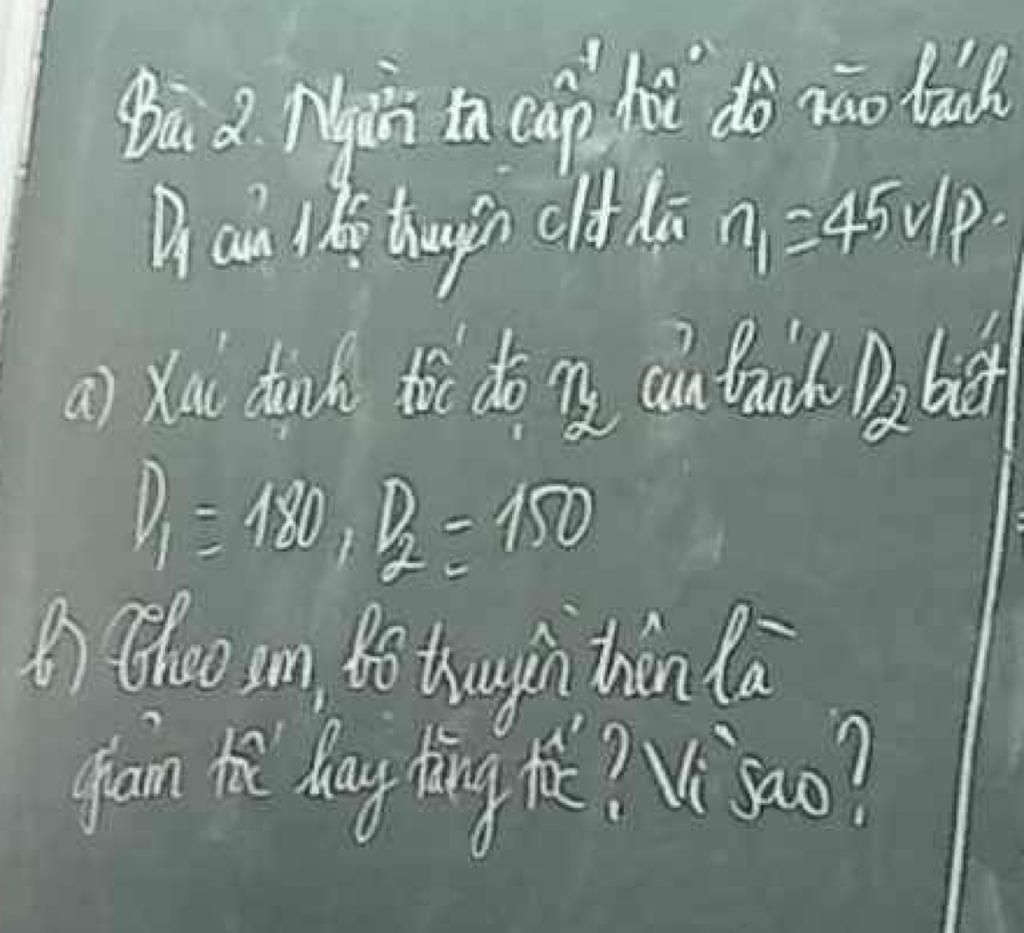 Bài 2. Người ta cấp tốc độ vào bánh
D₁ của 1 bộ truyền c/đ là n₁ = 45 v/p.
a) Xác định tốc độ n₂ của bánh D₂ biết
D₁ = 180, D₂ = 150
b) Theo em, bộ truyền trên là
giảm tốc hay tăng tốc? Vì sao?